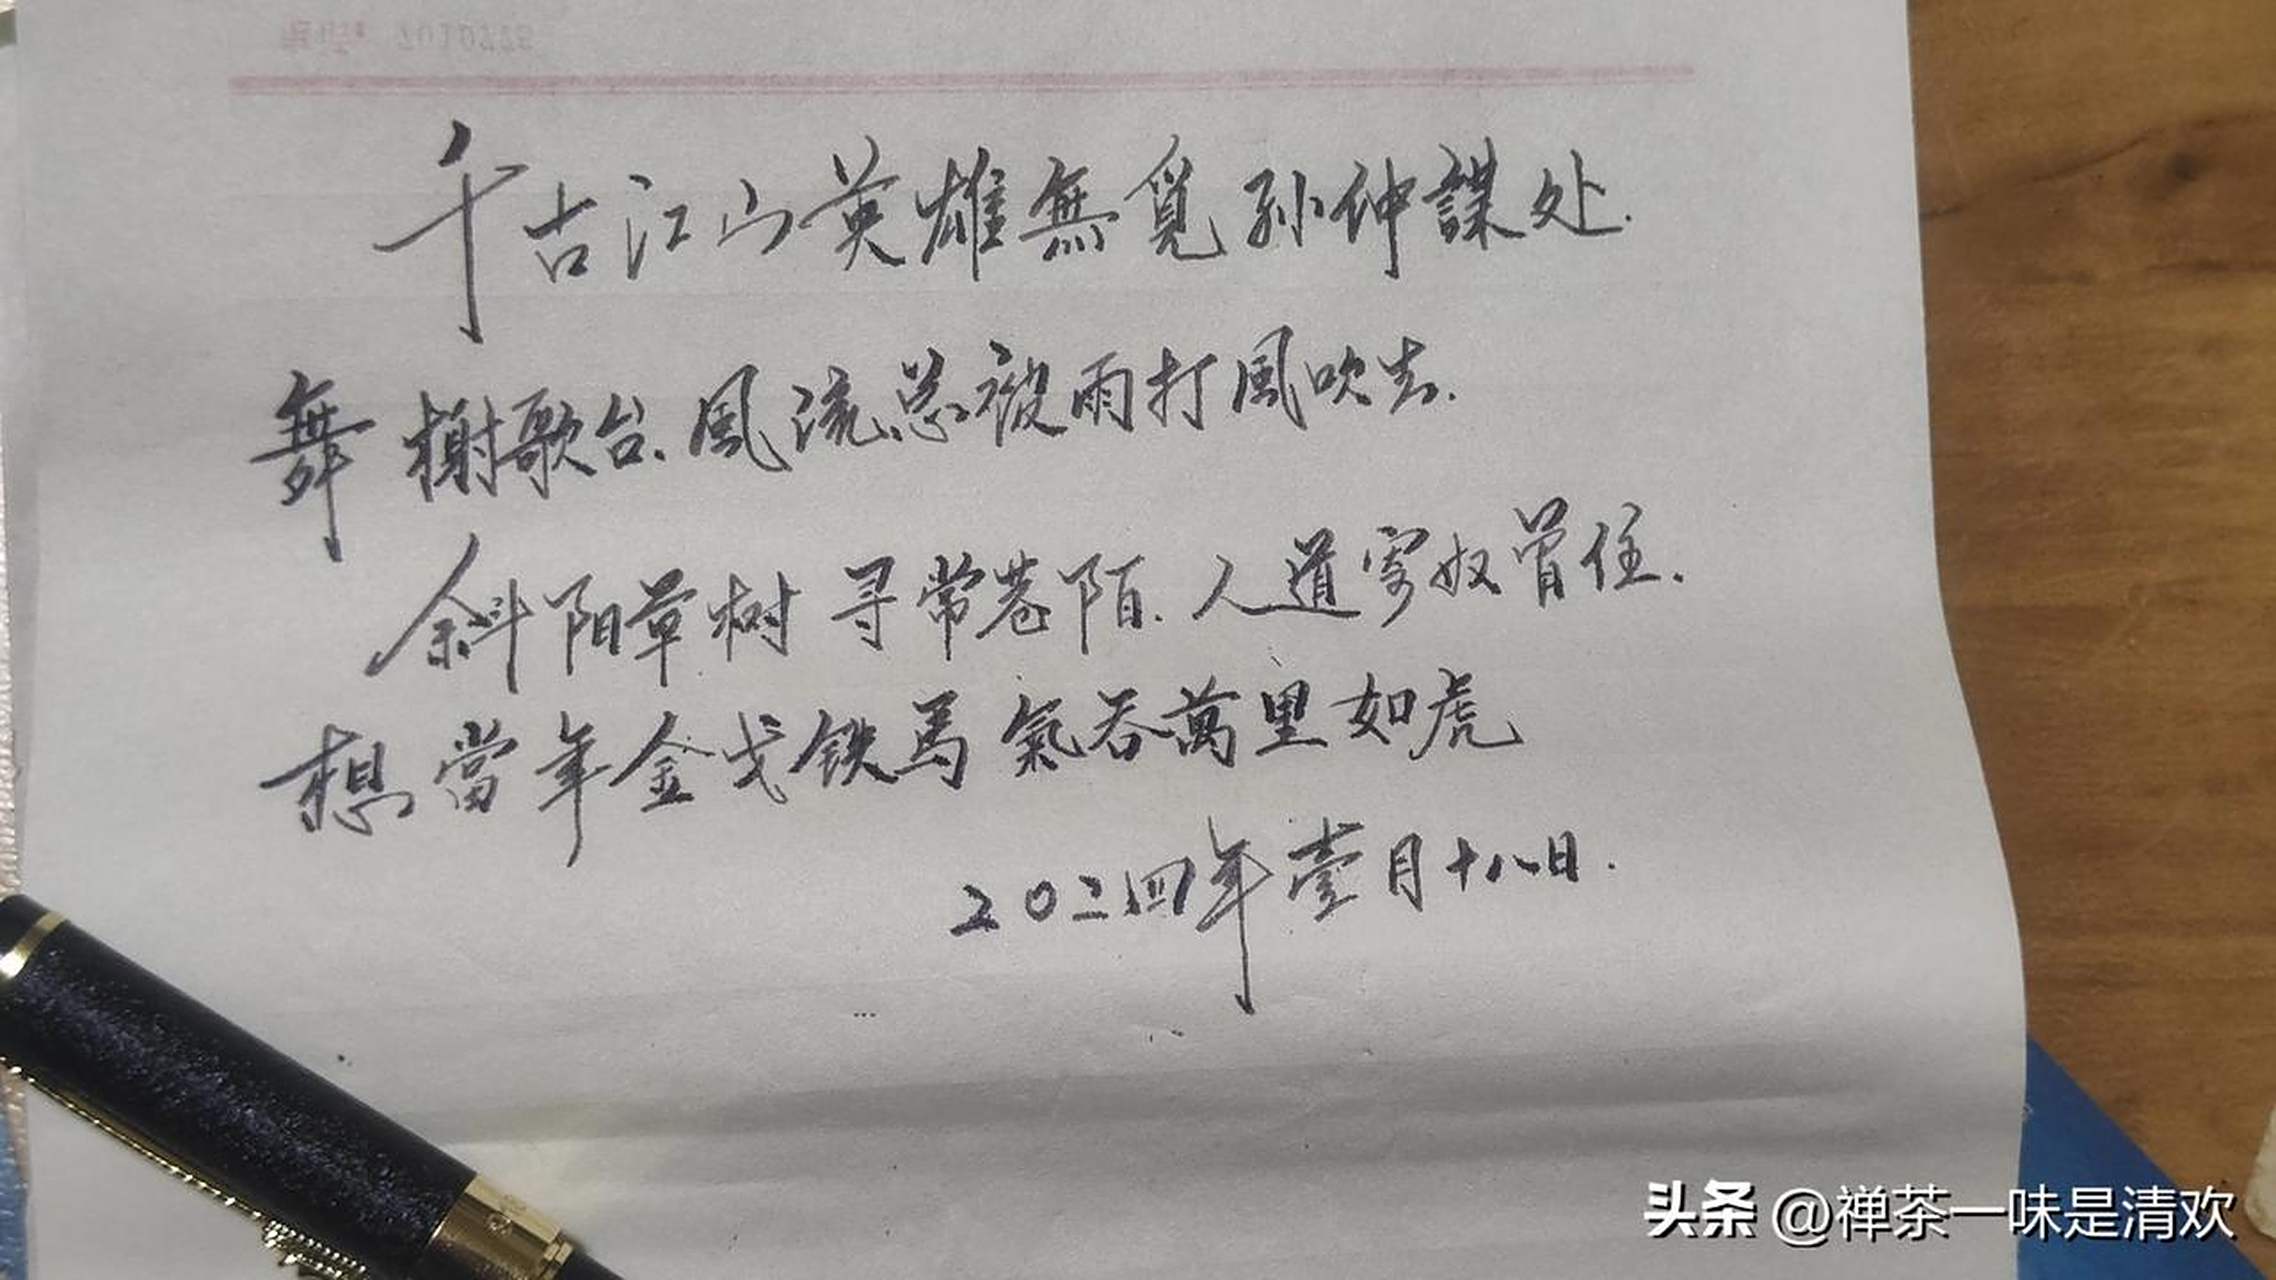 千古江山英雄無覓孙仲謀处.
舞榭歌台.風流总被雨打風吹去.
斜阳草树寻常巷陌.人道寄奴曾住.
想當年金戈铁馬氣吞萬里如虎
二0二四年壹月十八日.
头条@禅茶一味是清欢